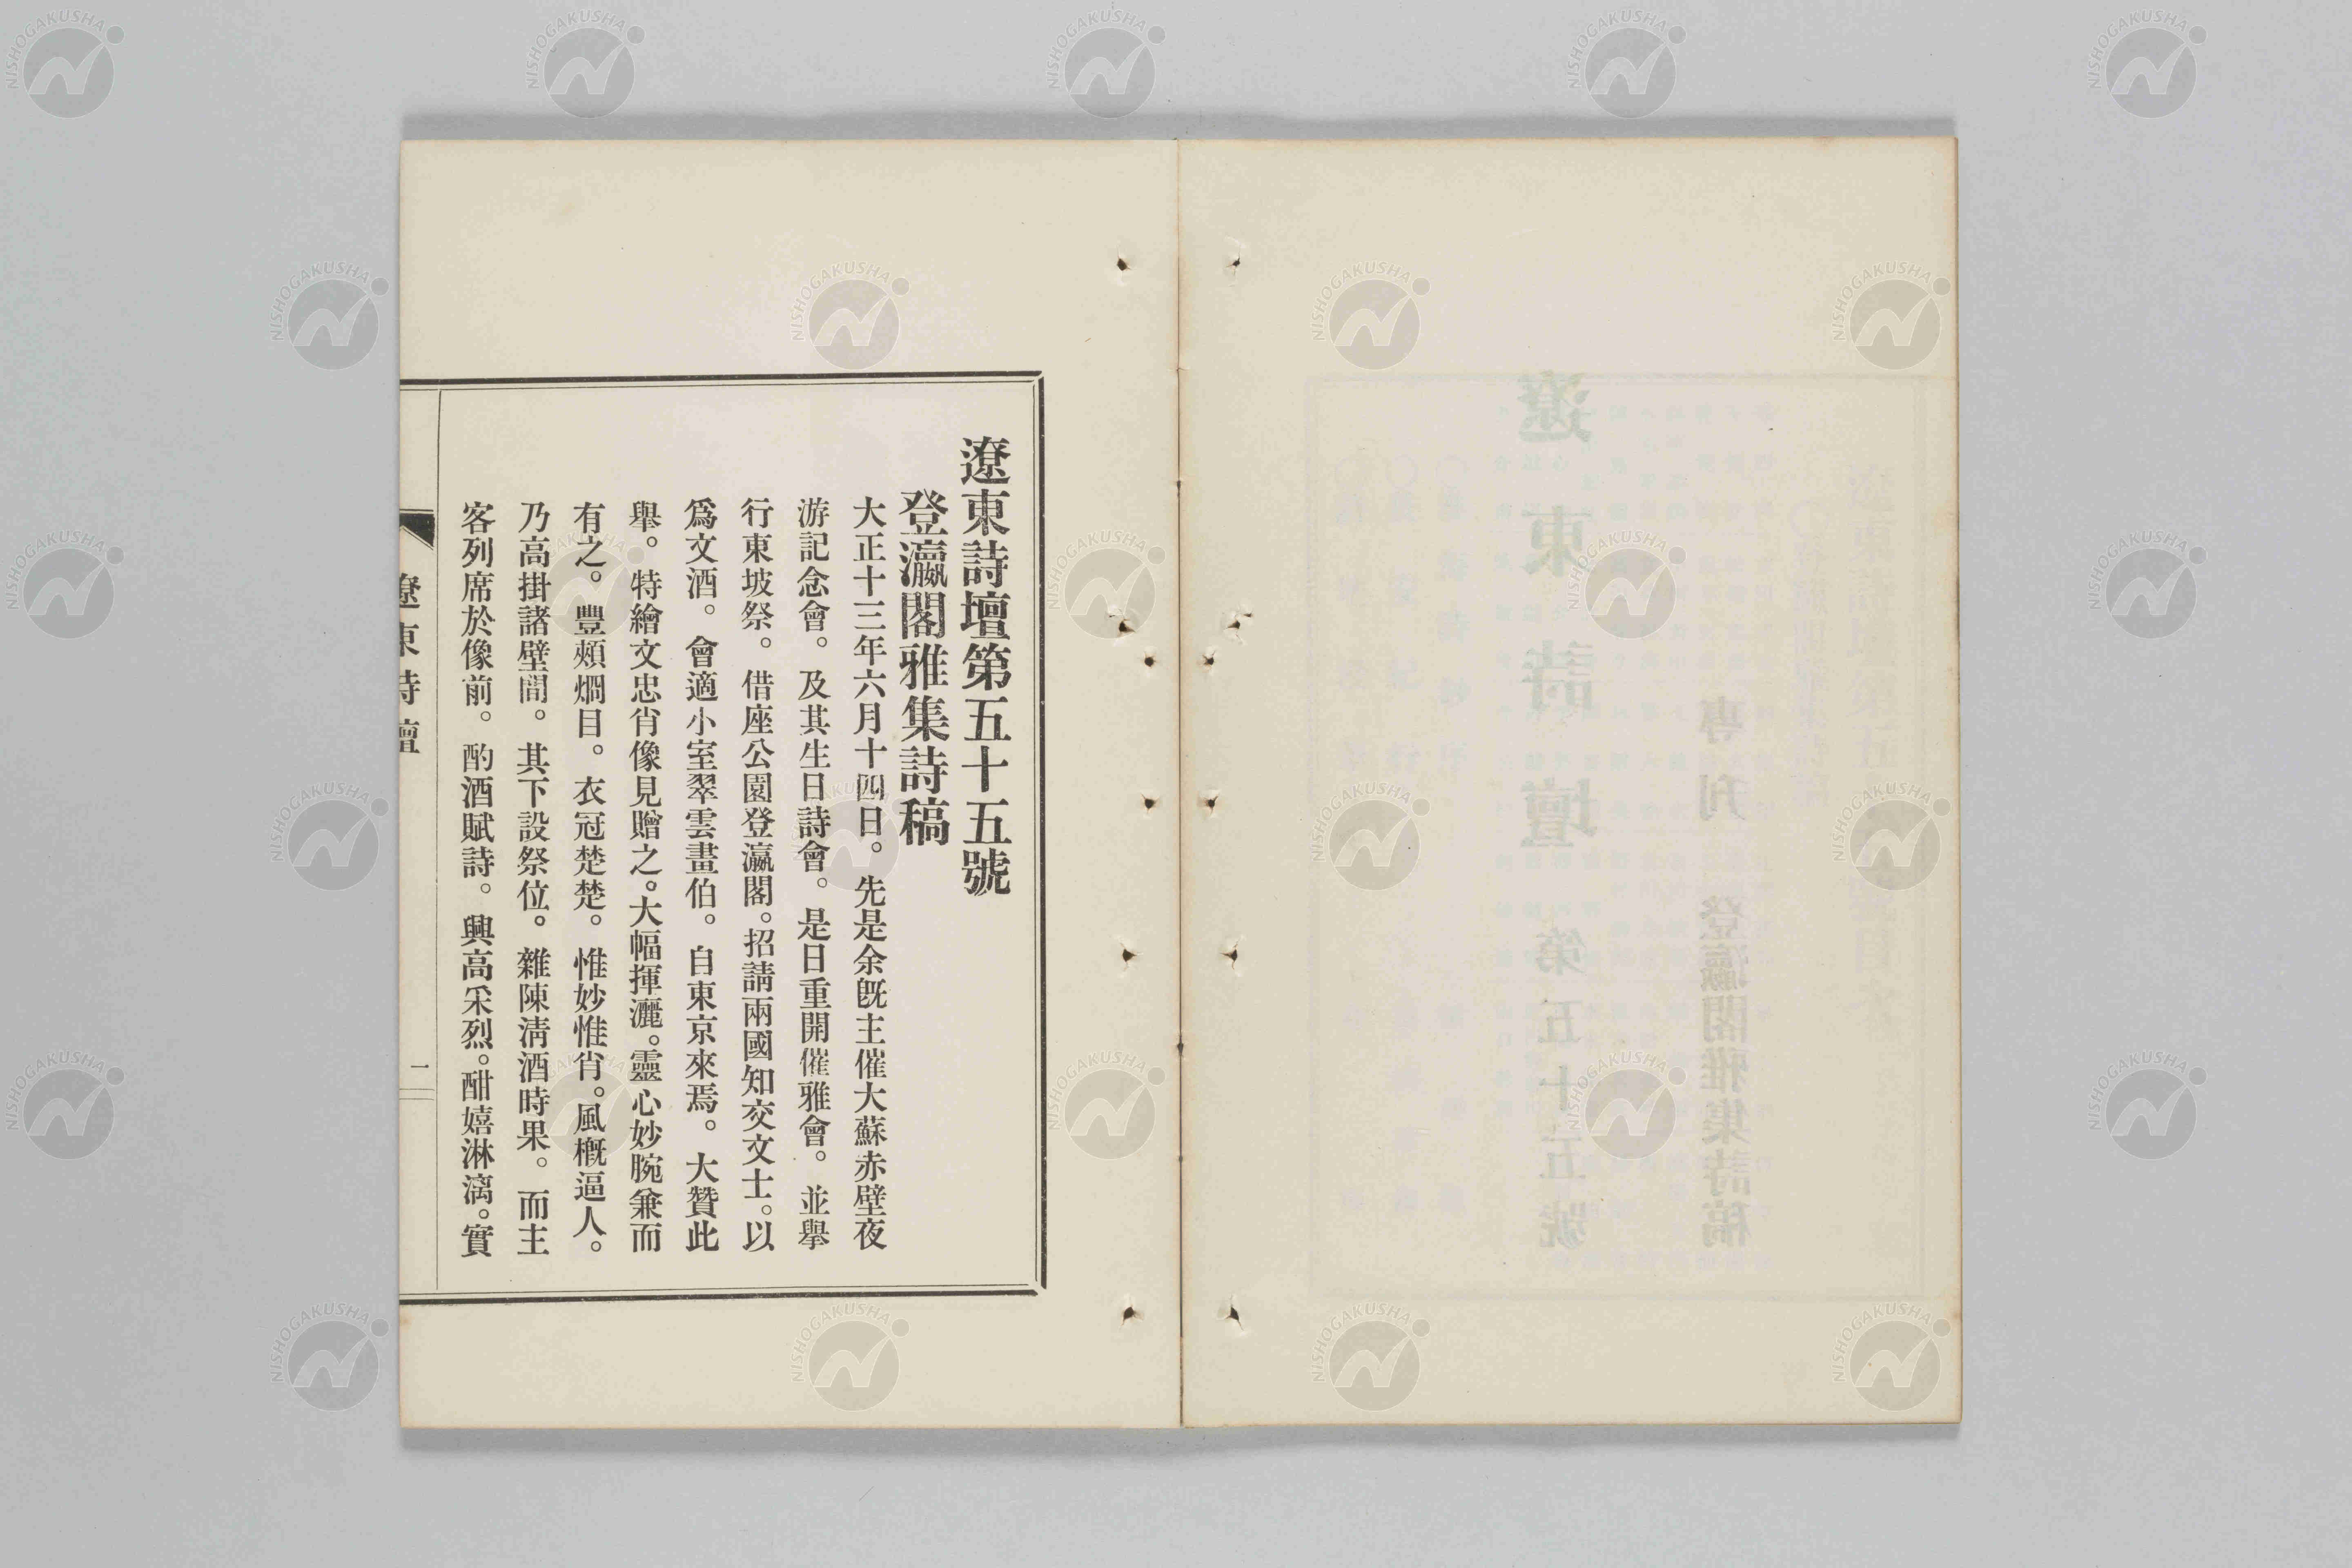 遼東詩壇第五十五號
登瀛閣雅集詩稿
大正十三年六月十四日。先是余旣主催大蘇赤壁夜
游記念會。及其生日詩會。是日重開催雅會。並擧
行東坡祭。借座公園登瀛閣。招請兩國知交文士。以
爲文酒。會適小室翠雲畫伯。自東京來焉。大贊此
擧。特繪文忠肖像見贈之。大幅揮灑。靈心妙腕兼而
有之。豐頰烱目。衣冠楚楚。惟妙惟肖。風槪逼人。
乃高掛諸壁間。其下設祭位。雜陳淸酒時果。而主
客列席於像前。酌酒賦詩。興高采烈。酣嬉淋漓。實
遼東詩壇
一
遼東詩壇 第五十五號
專刊 登瀛閣雅集詩稿
NISHOGAKUSHA